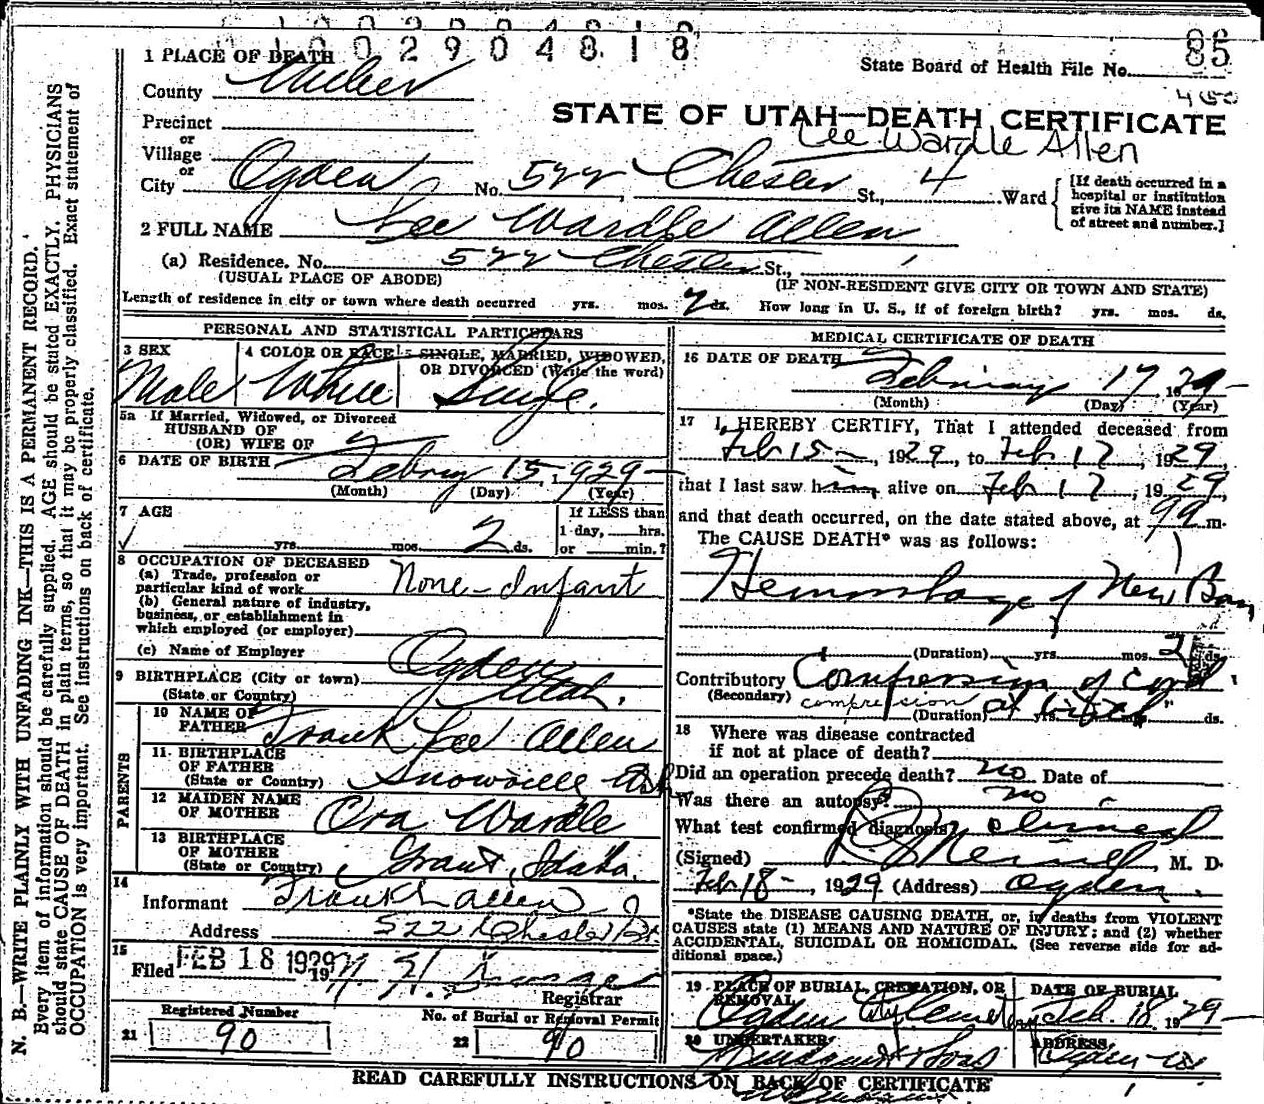 1 0 0 2 9 0 4 8 1 8
85
1 PLACE OF DEATH
State Board of Health File No.
County Weber
STATE OF UTAH—DEATH CERTIFICATE
Precinct
Lee Wardle Allen
or
Village
or
City Ogden No. 522 Chester St., 4 Ward
[If death occurred in a hospital or institution give its NAME instead of street and number.]
2 FULL NAME Lee Wardle Allen
(a) Residence. No. 522 Chester St.,
(USUAL PLACE OF ABODE) (IF NON-RESIDENT GIVE CITY OR TOWN AND STATE)
Length of residence in city or town where death occurred yrs. mos. 2 ds. How long in U. S., if of foreign birth? yrs. mos. ds.
PERSONAL AND STATISTICAL PARTICULARS
3 SEX Male
4 COLOR OR RACE White
5 SINGLE, MARRIED, WIDOWED, OR DIVORCED (Write the word) Single.
5a If Married, Widowed, or Divorced
HUSBAND OF
(OR) WIFE OF
6 DATE OF BIRTH Febry 15, 1929
(Month) (Day) (Year)
7 AGE yrs. mos. 2 ds.
If LESS than 1 day, hrs. or min.?
8 OCCUPATION OF DECEASED
(a) Trade, profession or particular kind of work None - Infant
(b) General nature of industry, business, or establishment in which employed (or employer)
(c) Name of Employer
9 BIRTHPLACE (City or town) Ogden
(State or Country) Utah.
PARENTS
10 NAME OF FATHER Frank Lee Allen
11. BIRTHPLACE OF FATHER (State or Country) Snowville Utah
12 MAIDEN NAME OF MOTHER Ora Wardle
13 BIRTHPLACE OF MOTHER (State or Country) Grant, Idaho.
14
Informant Frank L Allen
Address 522 Chester St.
15
Filed FEB 18 1929 19
Registrar
Registered Number No. of Burial or Removal Permit
21 90 22 90
MEDICAL CERTIFICATE OF DEATH
16 DATE OF DEATH February 17, 1929
(Month) (Day) (Year)
17 I, HEREBY CERTIFY, That I attended deceased from
Feb 15, 1929, to Feb 17, 1929,
that I last saw him alive on Feb 17, 1929,
and that death occurred, on the date stated above, at m.
The CAUSE DEATH* was as follows:
Hemorrhage of New Born
(Duration) yrs. mos. 2 ds.
Contributory Compression of cord
(Secondary) compression at birth"
(Duration) yrs. mos. ds.
18 Where was disease contracted
if not at place of death?
Did an operation precede death? no Date of
Was there an autopsy? no
What test confirmed diagnosis? clinical
(Signed) Merrill, M. D.
Feb 18, 1929 (Address) Ogden
*State the DISEASE CAUSING DEATH, or, in deaths from VIOLENT
CAUSES state (1) MEANS AND NATURE OF INJURY; and (2) whether
ACCIDENTAL, SUICIDAL OR HOMICIDAL. (See reverse side for additional space.)
19 PLACE OF BURIAL, CREMATION, OR REMOVAL Ogden City Cemetery
DATE OF BURIAL Feb. 18, 1929
20 UNDERTAKER & Sons
ADDRESS Ogden
READ CAREFULLY INSTRUCTIONS ON BACK OF CERTIFICATE
N. B.—WRITE PLAINLY WITH UNFADING INK—THIS IS A PERMANENT RECORD.
Every item of information should be carefully supplied. AGE should be stated EXACTLY. PHYSICIANS
should state CAUSE OF DEATH in plain terms, so that it may be properly classified. Exact statement of
OCCUPATION is very important. See instructions on back of certificate.